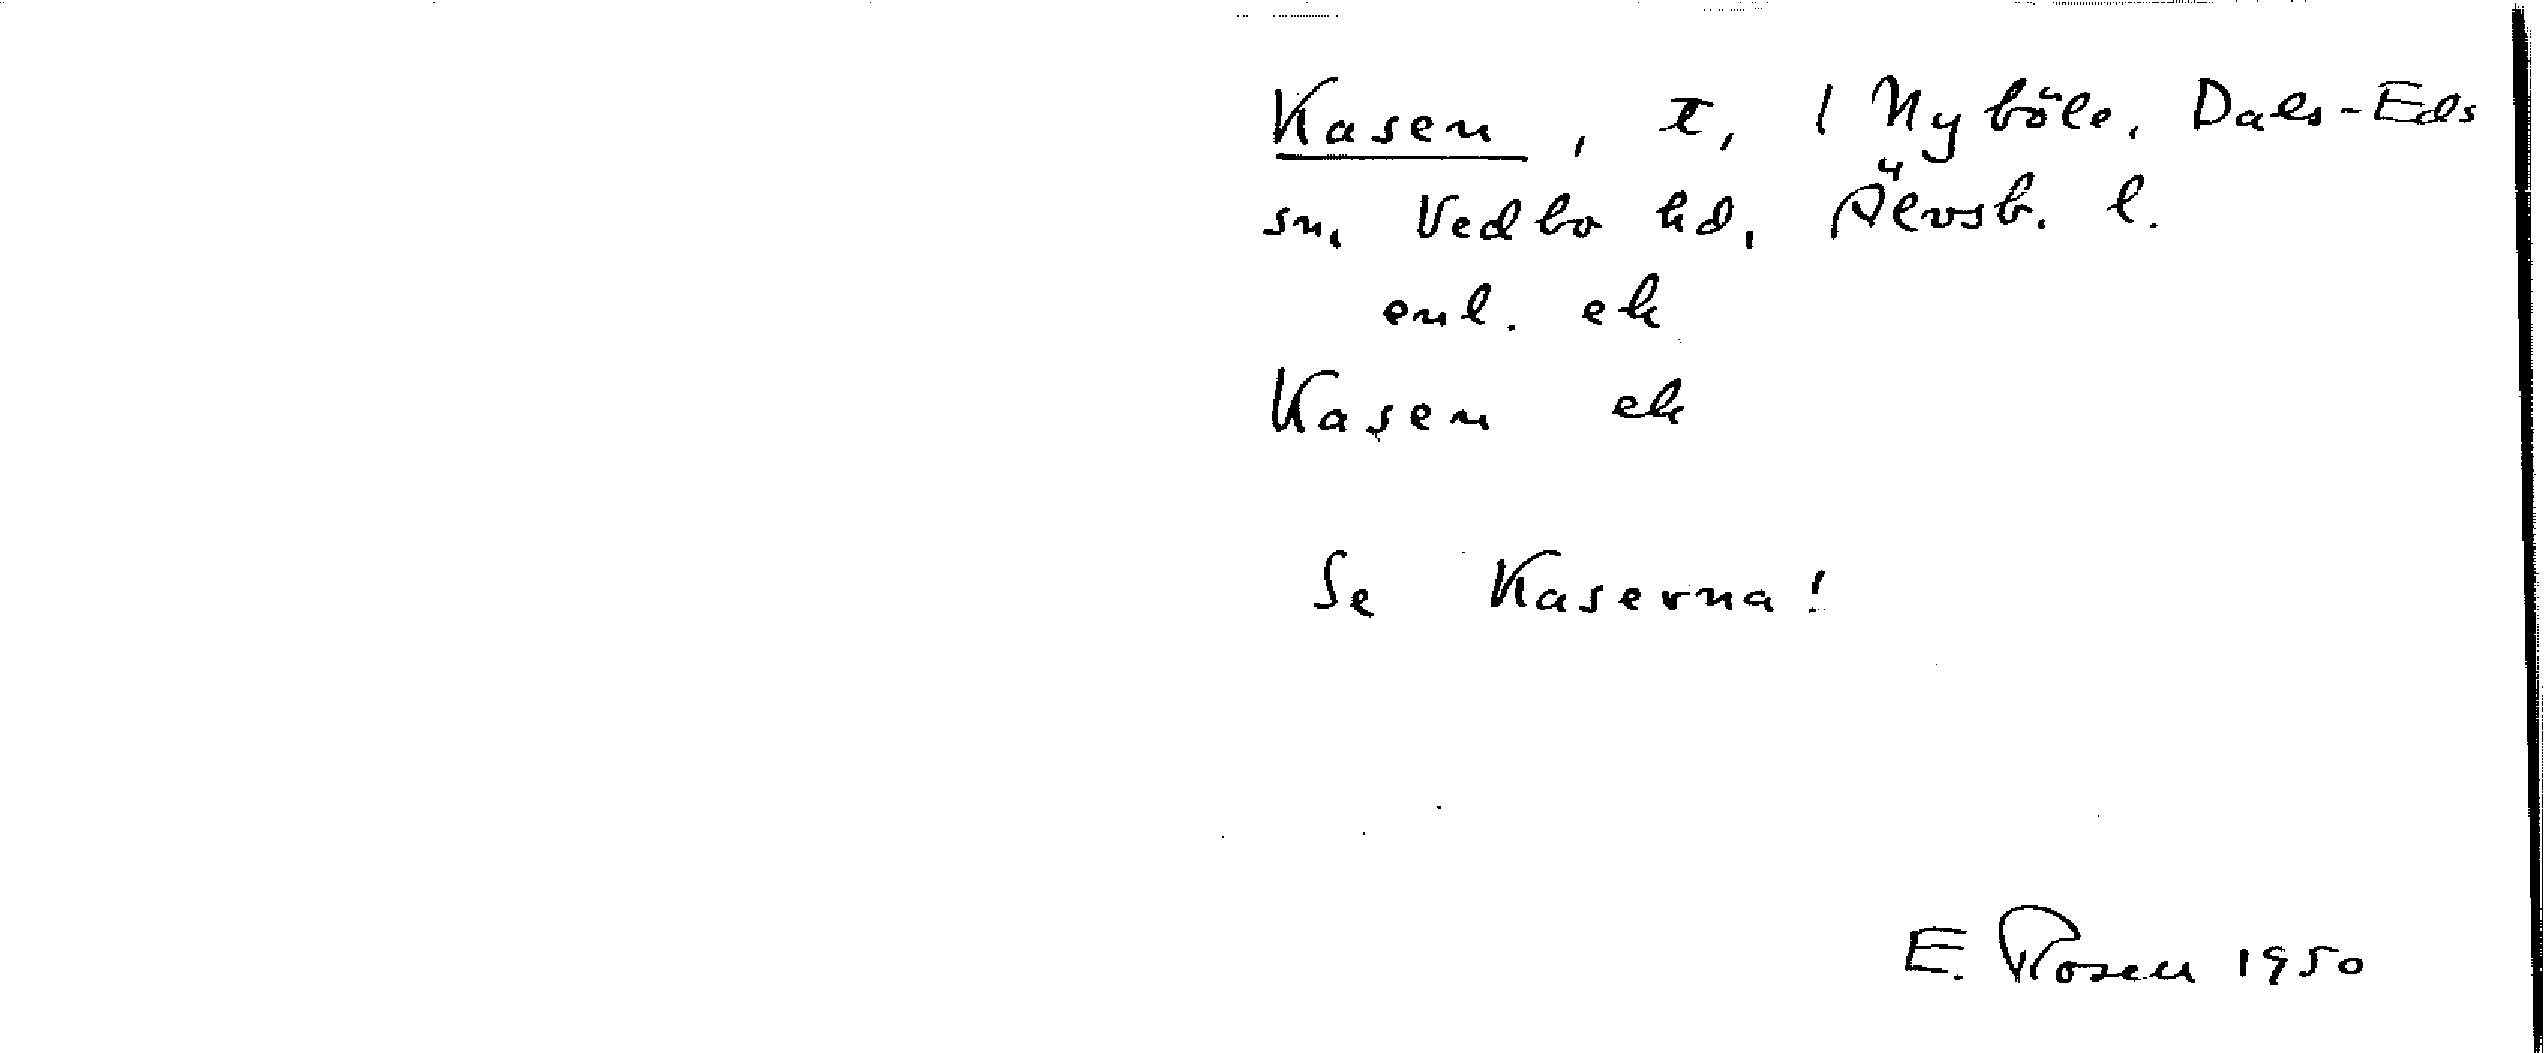 Kasen, t, 1 Nyböle, Dals-Eds
sn, Vedbo hd, Älvsb. l.
enl. ek
Kasen ek
Se Kaserna!
E. Rosen 1950